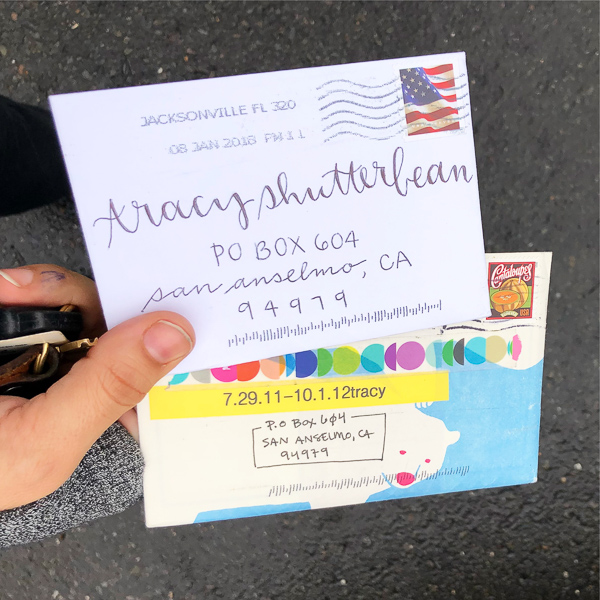 JACKSONVILLE FL 320
08 JAN 2018 PM 1 L
tracy shutterbean
PO BOX 604
san anselmo, CA
94979
Cantaloupes
USA
7.29.11-10.1.12tracy
P.O BOX 604
SAN ANSELMO, CA
94979